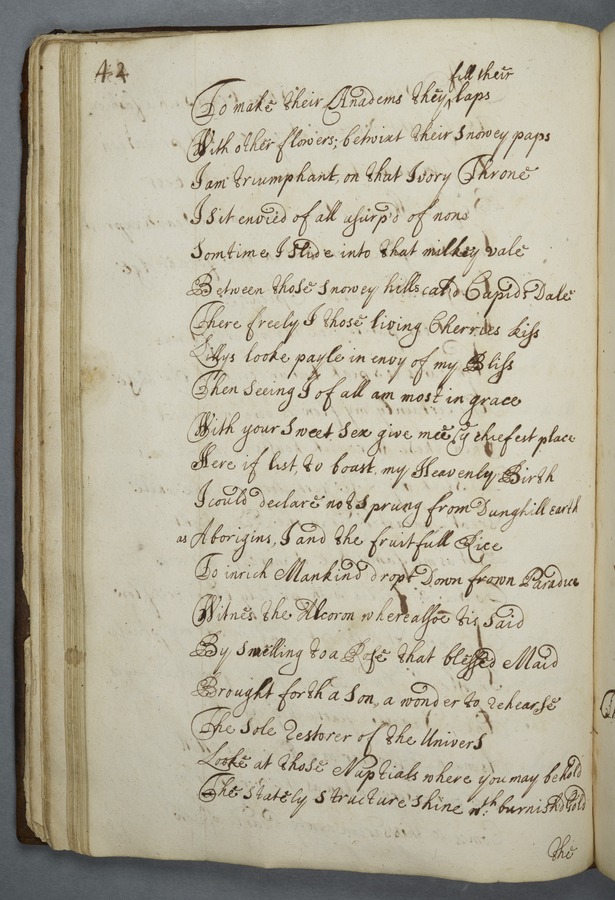 42
fill their
To make their Anadems they laps
With other flowers; betwixt their Snowey paps
I am triumphant, on that Ivory Throne
I sit envied of all usurp'd of none
Somtime I Slide into that milkey vale
Between those Snowey hills cal'd Cupids Dale
There freely I those living Cherries kiss
Lillys looke payle in envy of my Bliss
Then Seeing I of all am most in grace
With your Sweet Sex give mee ye chiefest place
Here if I list to boast my Heavenly Birth
I could declare not Sprung from Dunghill Earth
as Aborigins, I and the fruitfull Rice
To inrich Mankind dropt Down from Paradice
Witnes the Alcoron where allsoe tis Said
By Smelling to a Rose that blessed Maid
Brought forth a Son, a wonder to rehearse
The Sole restorer of the Univers
Looke at those Nuptials where you may behold
The Stately Structure Shine wth: burnish'd Gold
the